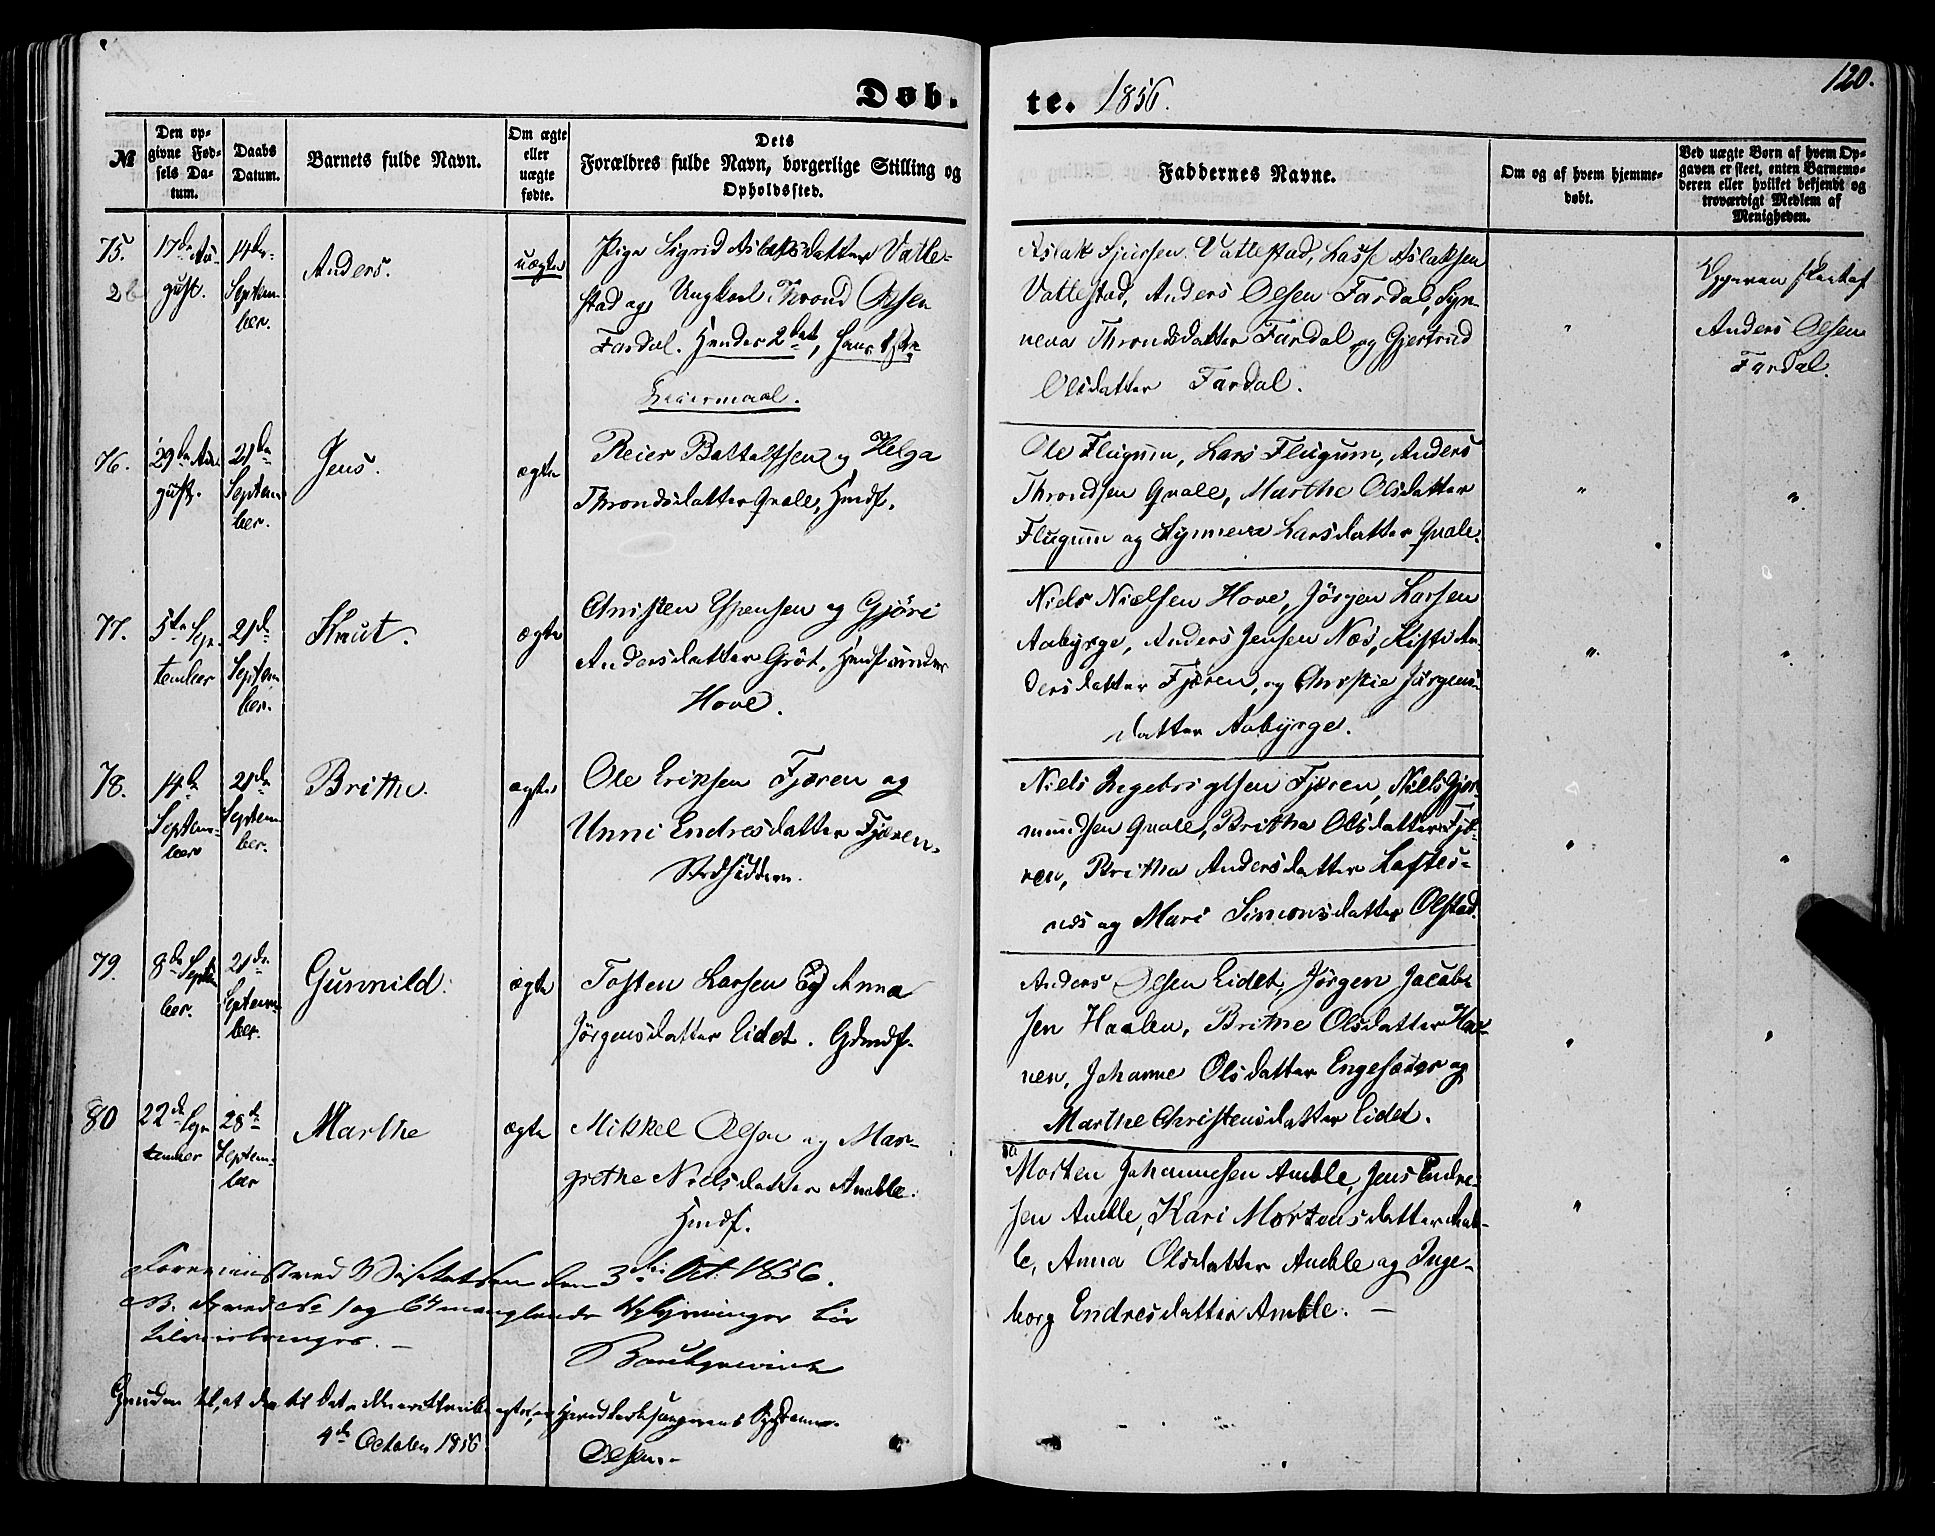 Døb-
te. 1856.
120.
№
Den op-
givne Fød-
sels Da-
tum.
Daabs
Datum.
Barnets fulde Navn.
Om ægte
eller
uægte
fødte.
Dets
Forældres fulde Navn, borgerlige Stilling og
Opholdssted.
Faddernes Navne.
Om og af hvem hjemme-
døbt.
Ved uægte Børn af hvem Op-
gaven er skeet, enten Barnemo-
deren eller hvilket bekjendt og
troværdigt Medlem af
Menigheden.
75.
17de Au-
gust.
14de
Septem-
ber.
Anders.
uægte
Pige Sigrid Aslaksdatter Vatle-
stad og Ungkarl Thrond Olsen
Fardal. Hendes 2det, hans 1ste
Leiermaal.
Aslak Sjursen Vatlestad, Lasse Aslaksen
Vatlestad, Anders Olsen Fardal, Syn-
neva Throndsdatter Fardal og Gjertrud
Olsdatter Fardal.
"
Opgaven skeet af
Anders Olsen
Fardal.
76.
29de Au-
gust.
21de
Septem-
ber.
Jens.
ægte
Reier Botolfsen og Helga
Throndsdatter Qvale, Hmdf.
Ole Flugum, Lars Flugum, Anders
Throndsen Qvale, Marthe Olsdatter
Flugum og Synneva Larsdatter Qvale.
"
"
77.
5te Sep-
tember
21de
Septem-
ber.
Knut.
ægte
Christen Espensen og Gjøri
Andersdatter Grøt, Hmdf under
Hove.
Niels Nielsen Hove, Jørgen Larsen
Aabyrge, Anders Jensen Næs, Kisti An-
dersdatter Fjæren, og Christie Jørgens-
datter Aabyrge.
"
"
78.
14de
Septem-
ber
21de
Septem-
ber.
Brithe.
ægte
Ole Eriksen Fjæren og
Unni Endresdatter Fjæren,
Strdsiddere.
Niels Ingebrigtsen Fjæren, Niels Gjer-
mundsen Qvale, Britha Olsdatter Fjæ-
ren, Britha Andersdatter Loftes-
næs og Mari Simonsdatter Olstad.
"
"
79.
8de Septem-
ber.
21de
Septem-
ber.
Gunnild.
ægte
Tosten Larsen og Anna
Jørgensdatter Eidet. Gbmdf.
Anders Olsen Eidet, Jørgen Jacob-
sen Haalen, Brithe Olsdatter Haa-
nen, Johanne Olsdatter Engesæter og
Marthe Christensdatter Eidet.
"
"
80
22de Sep-
tember
28de
Septem-
ber
Marthe
ægte
Mikkel Olsen og Mar-
grethe Nielsdatter Amble.
Hmdf.
80
Morten Johannesen Amble, Jens Endre-
sen Amble, Kari Mortensdatter Amb-
le, Anna Olsdatter Amble og Inge-
borg Endresdatter Amble. —
"
Foreviist ved Visitatsen den 3die Oct. 1856.
NB. de ved No 1 og 64 manglende Oplysninger bør
tilveiebringes. —
4de October 1856
Olsen. -